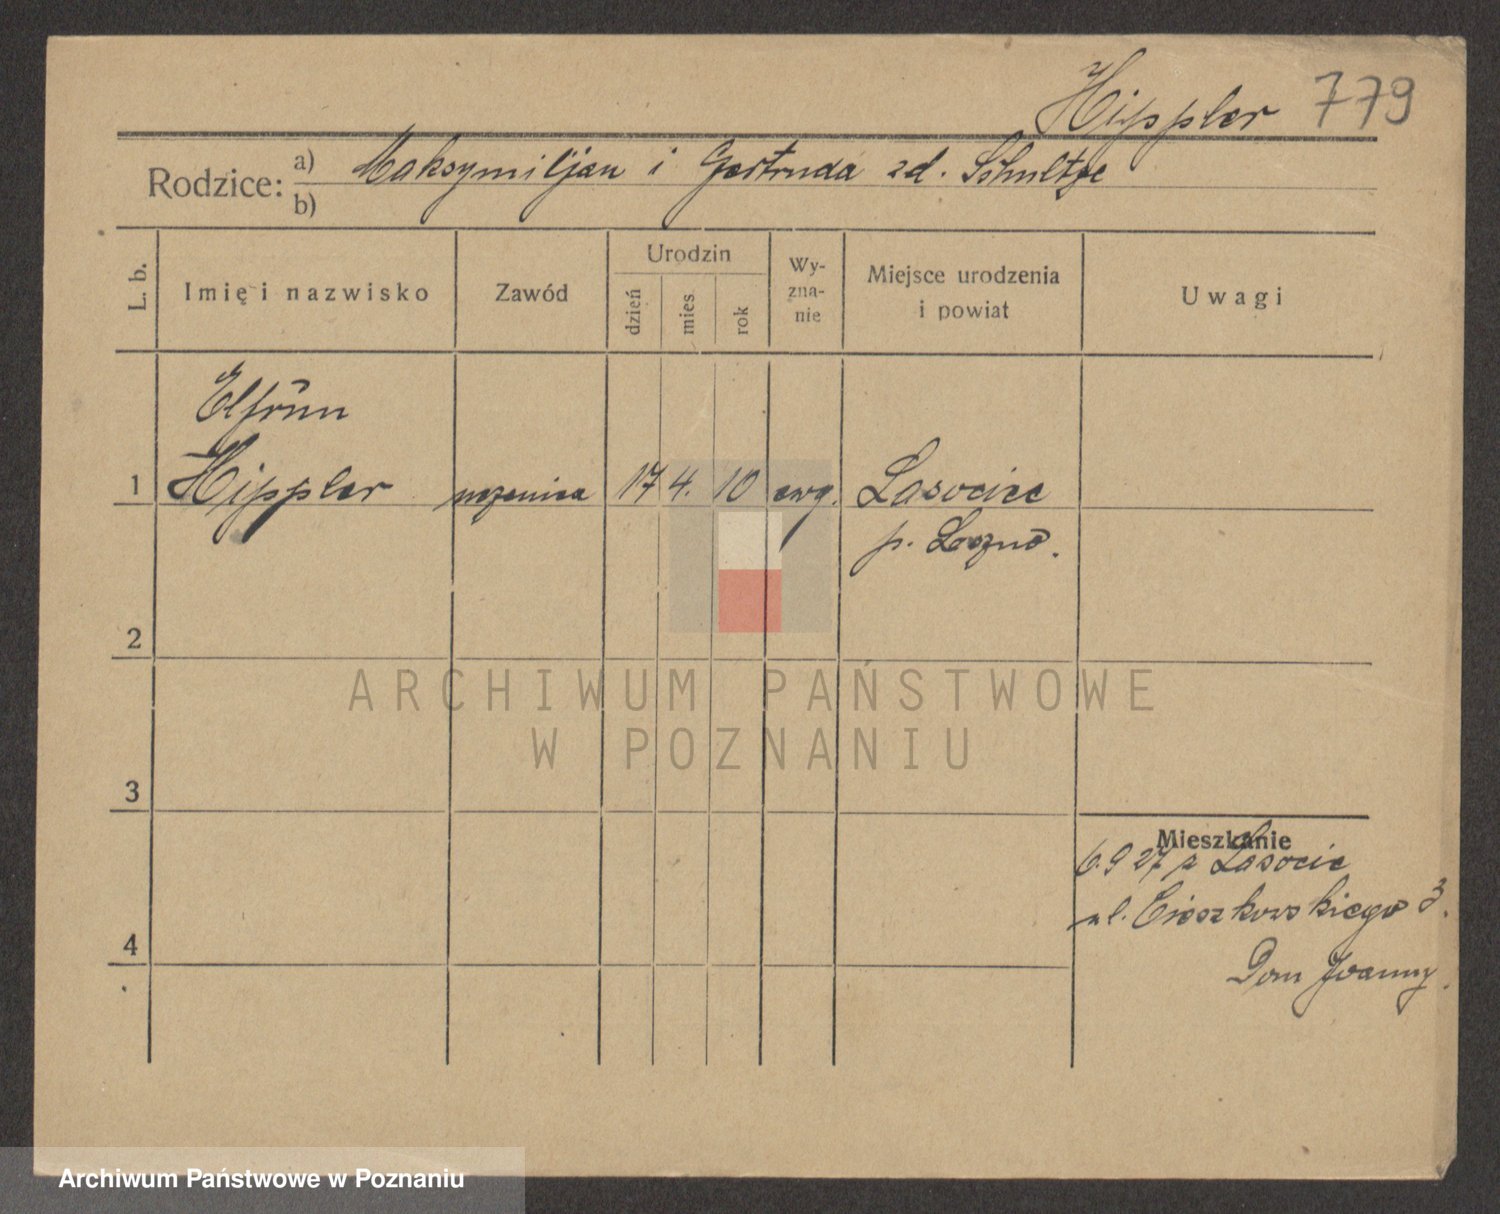 Hippler 779
Rodzice: a) Maksymiljan i Gertruda zd. Schultze
b)
L. b.
Imię i nazwisko
Zawód
Urodzin
dzień
mies
rok
Wy-
zna-
nie
Miejsce urodzenia
i powiat
Uwagi
Elfrun
1 Hippler uczenica 17 4. 10 ewg. Lasocice
p. Leszno.
2
ARCHIWUM PAŃSTWOWE
W POZNANIU
3
Mieszkanie
6.9 27 z Lasocic
ul. Cieszkowskiego 3.
4
Dom Joanny.
Archiwum Państwowe w Poznaniu